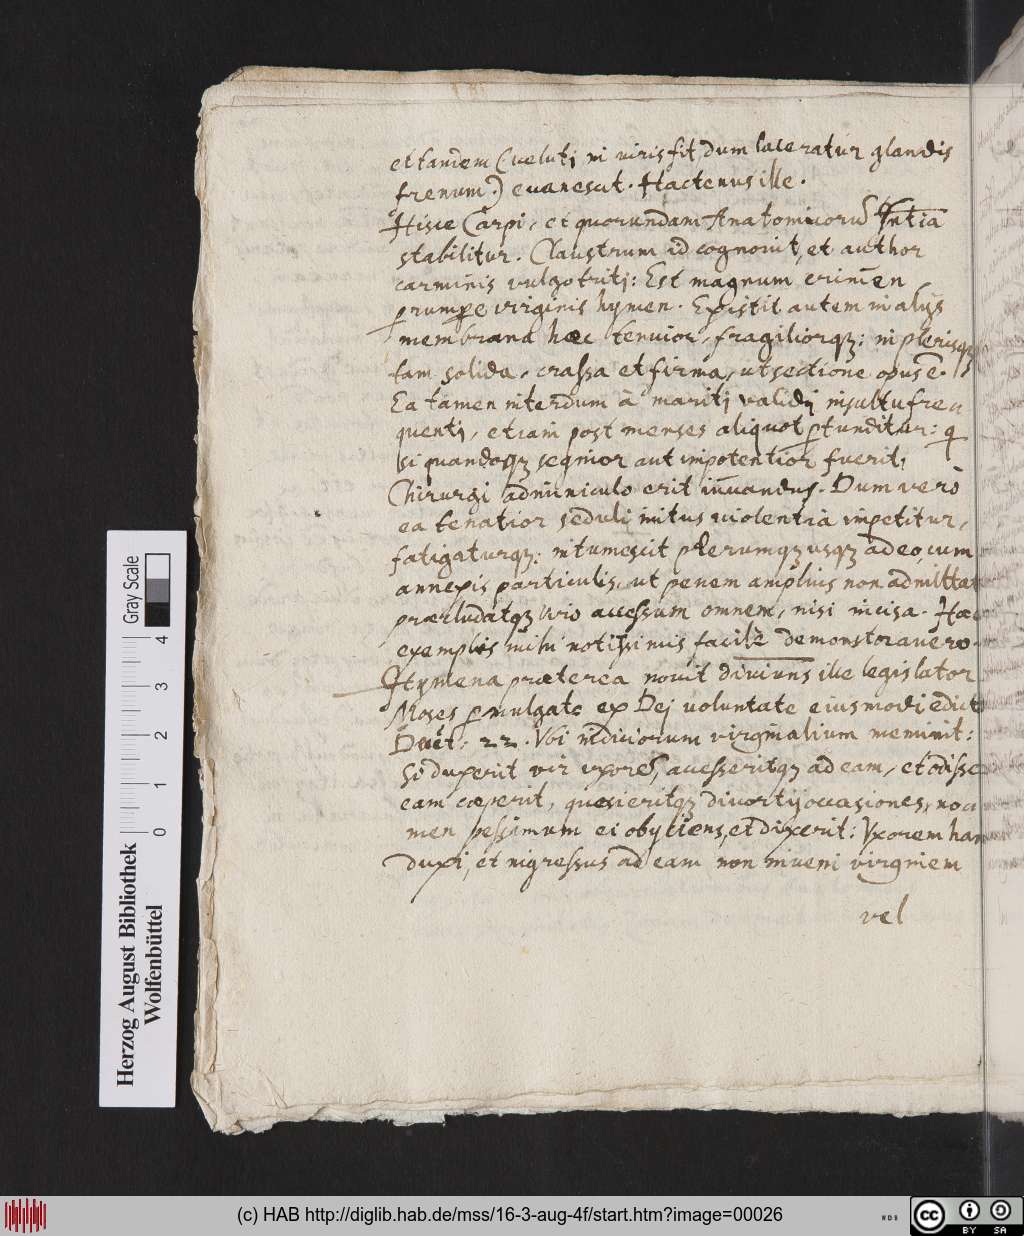 et tandem (veluti in viris fit, dum laceratur glandis
frenum.) evanescit. Hactenus ille.
Hisce Carpi, et quorundam Anatomicorū sn̄tia
stabilitur. Claustrum id cognovit, et author
carminis vulgo triti: Est magnum crimen
prumpere virginis hymen. Existit autem in alijs
membrana hæc tenuior, fragiliorqz: in plerisqz
tam solida, crassa et firma, ut sectione opus ē.
Ea tamen interdum à mariti validi insultu fre
quenti, etiam post menses aliquot ptunditur: q
si quandoqz segnior aut impotentior fuerit,
Chirurgi adminiculo erit iuvandus. Dum verò
ea tenatior seduli initus violentia impetitur,
fatigaturqz: intumescit plerumqz usqz adeo, cum
annexis particulis, ut penem amplius non admittat
præcludatqz viro accessum omnem, nisi incisa. Hæc
exemplis mihi notissimis facilè demonstravero.
Hymena præterea novit divinus ille legislator
Moses pmulgato ex Dei voluntate eiusmodi edict
Deut. 22. Vbi indiciorum virginalium meminit:
Si duxerit vir vxorē, accesseritqz ad eam, et odisse
eam cœperit, quesieritqz divortij occasiones, no
men pessimum ei obyciens, et dixerit: Vxorem han
duxi, et ingressus ad eam non inveni virginem
vel
Herzog August Bibliothek
Wolfenbüttel
Gray Scale
0 1 2 3 4
(c) HAB http://diglib.hab.de/mss/16-3-aug-4f/start.htm?image=00026
WDB
cc
BY SA